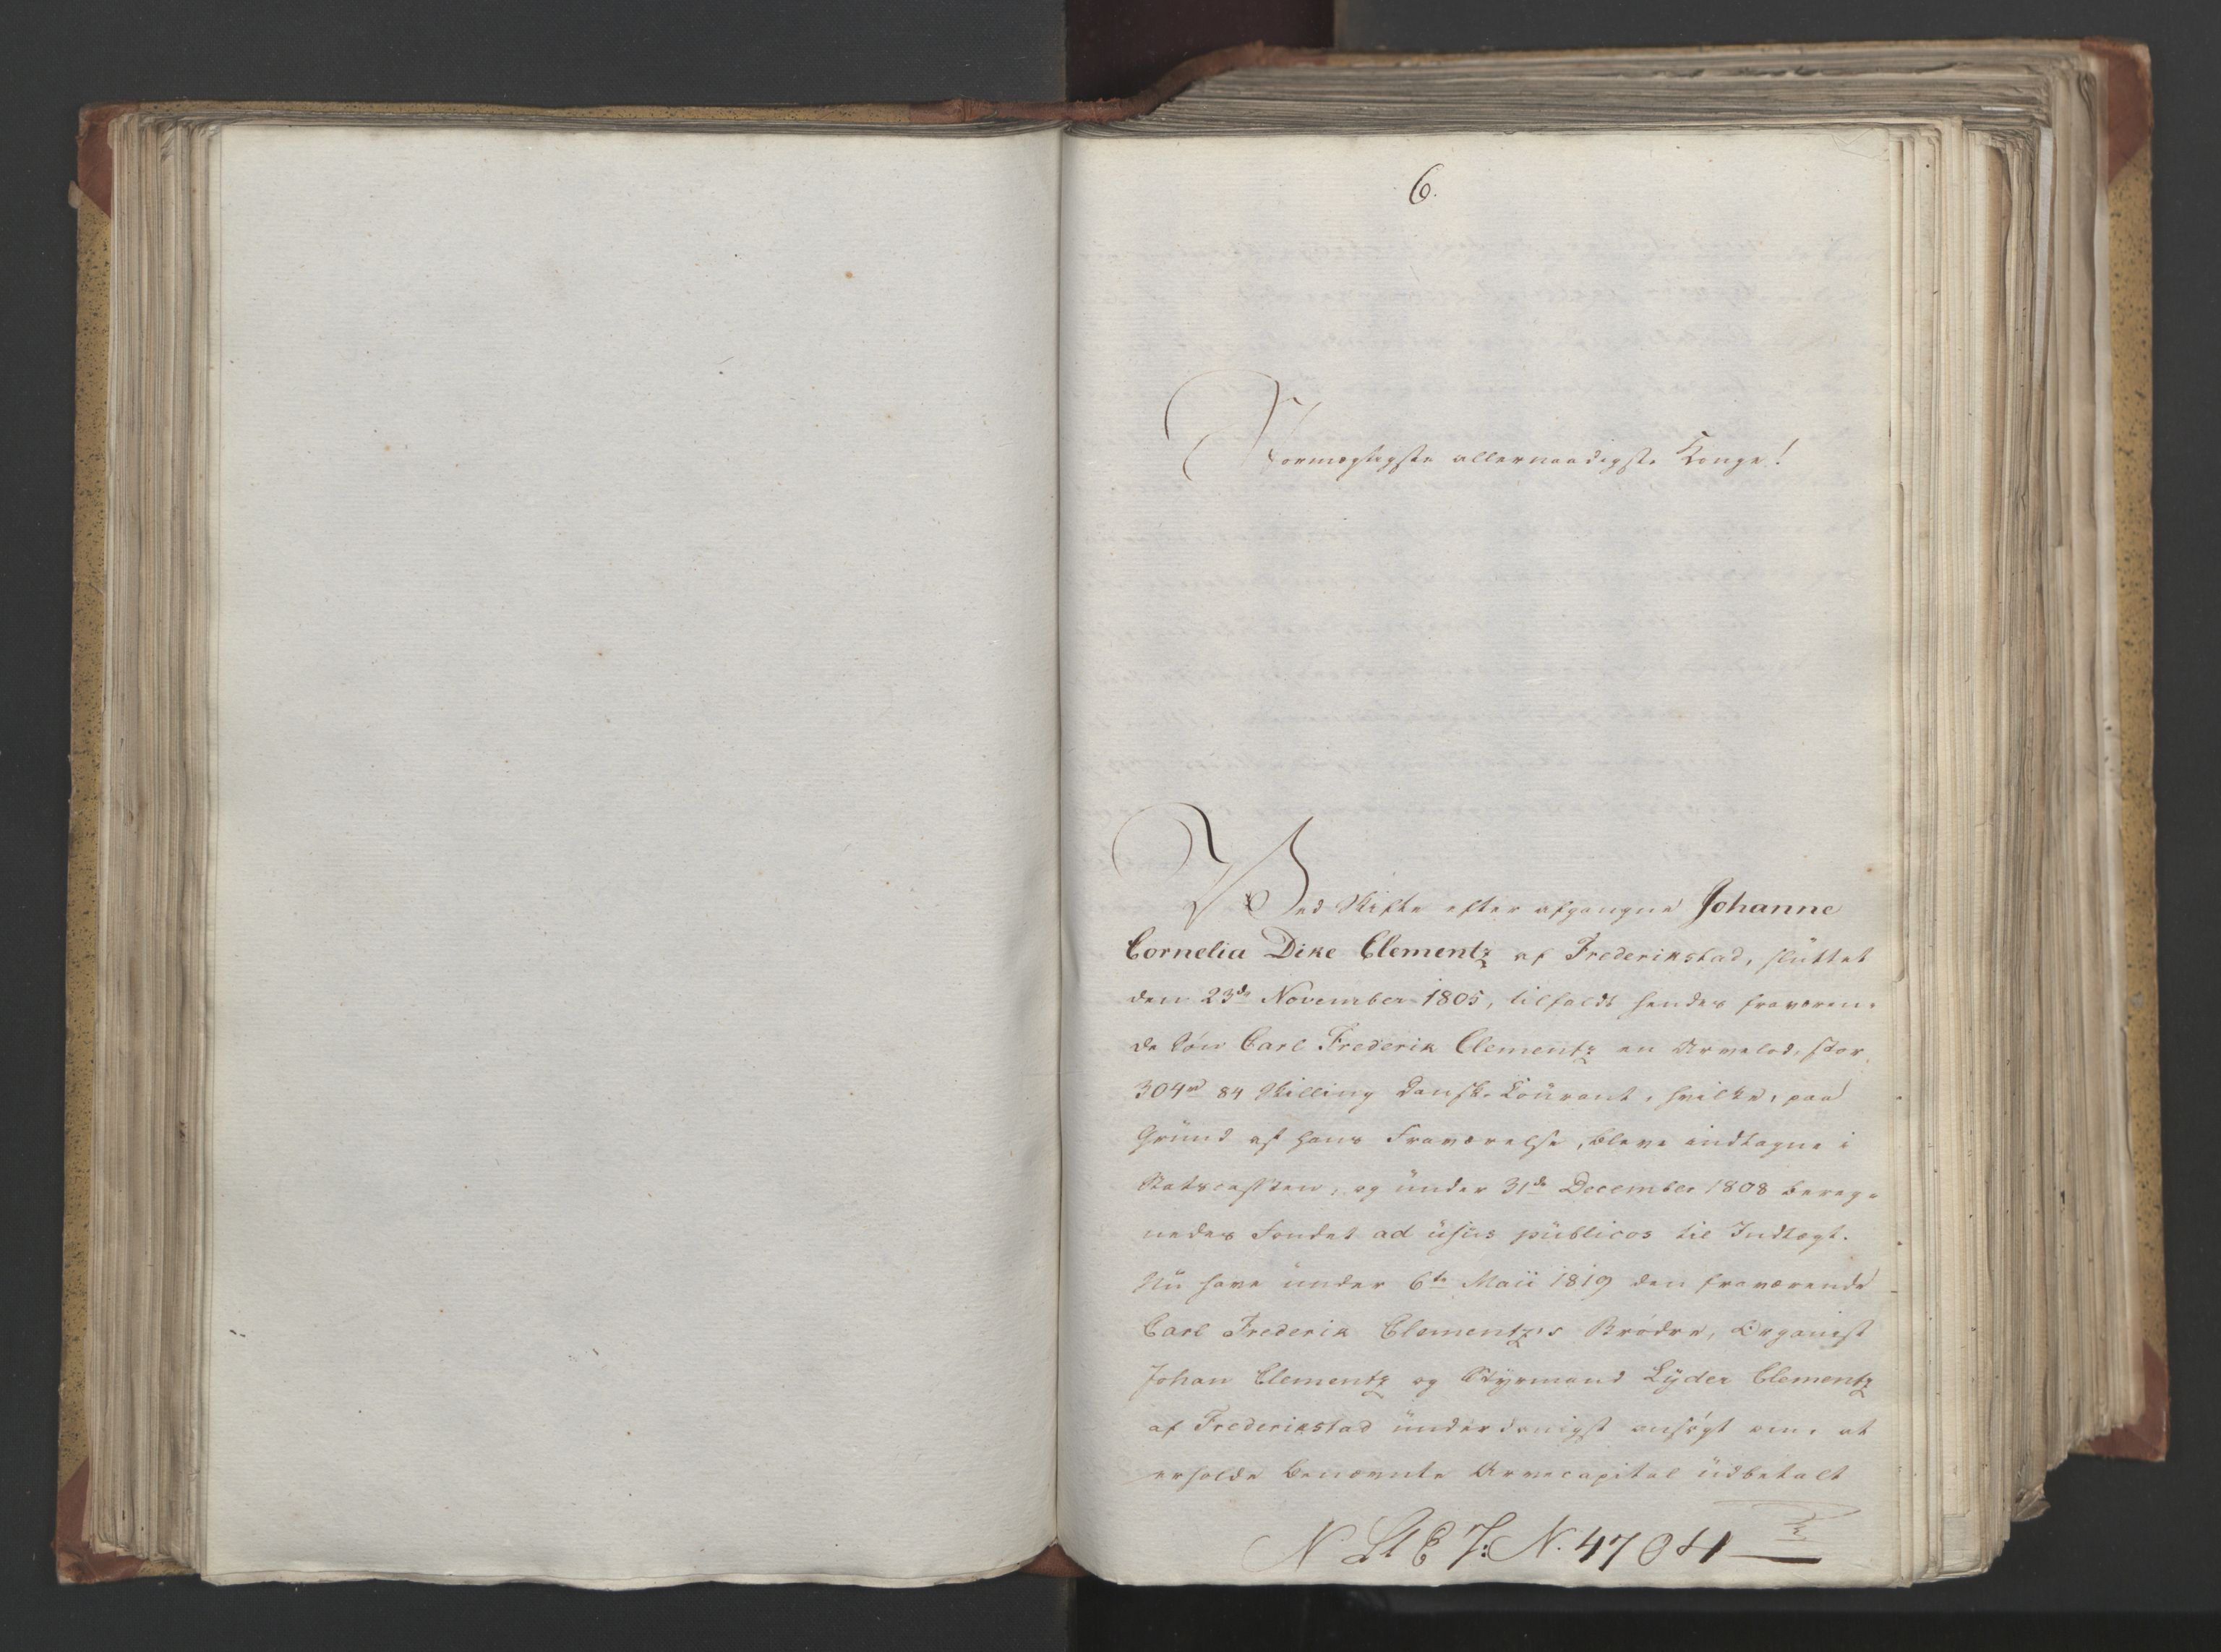 6.
Stormægtigste allernaadigste Konge!
Ved Skifte efter afgangne Johanne
Cornelia Dike Clementz af Frederikstad, sluttet
den 23de November 1805, tilfaldt hendes fraværen-
de Søn Carl Frederik Clementz en Arvelod, stor
304rd 84 Skilling Dansk Courant, hvilke, paa
Grund af hans Fraværelse, bleve indtagne i
Statscassen, og under 31de December 1808 bereg-
nedes Fondet ad usus publicos til Indtægt.
Nu have under 6te Maii 1819 den fraværende
Carl Frederik Clementz's Brødre, Organist
Johan Clementz og Styrmand Lyder Clementz
af Frederikstad underdanigst ansøgt om, at
erholde benævnte Arvecapital udbetalt
N St E J: N. 4704